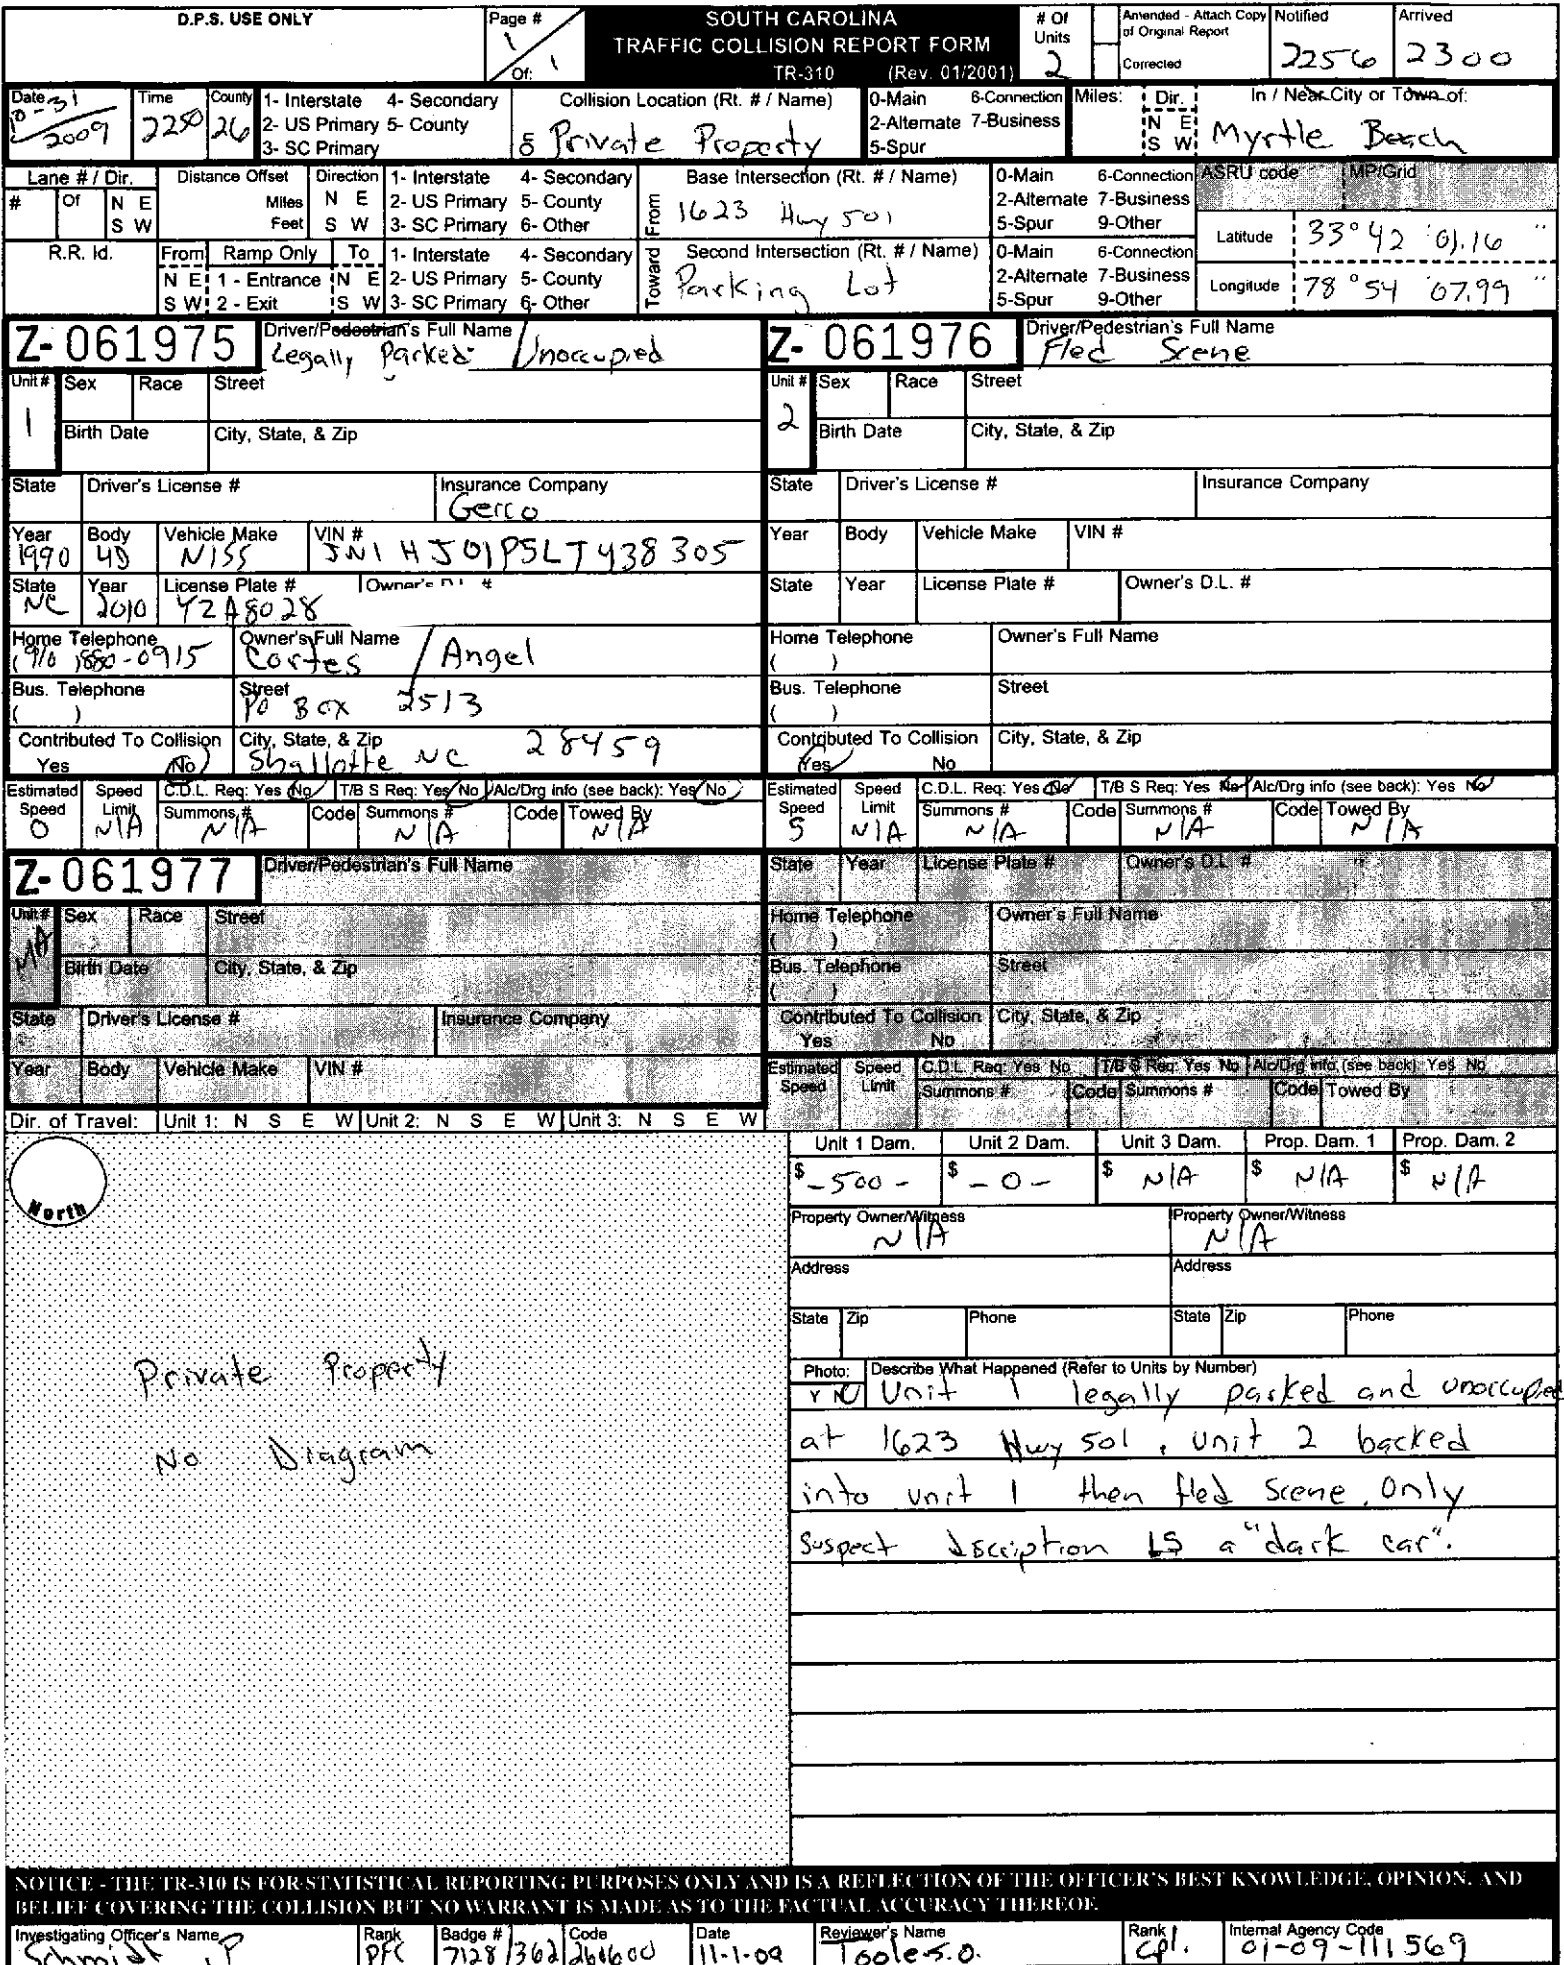 D.P.S. USE ONLY
Page #
1
Of: 1
SOUTH CAROLINA
TRAFFIC COLLISION REPORT FORM
TR-310 (Rev. 01/2001)
# Of Units
2
Amended - Attach Copy of Original Report
Corrected
Notified
2256
Arrived
2300
Date
10-31
2009
Time
2250
County
26
1- Interstate 4- Secondary
2- US Primary 5- County
3- SC Primary
Collision Location (Rt. # / Name)
Private Property
0-Main 6-Connection
2-Alternate 7-Business
5-Spur
Miles:
Dir.
N E
S W
In / Near City or Town of:
Myrtle Beach
Lane # / Dir.
# Of N E
S W
Distance Offset
Miles
Feet
Direction
N E
S W
1- Interstate 4- Secondary
2- US Primary 5- County
3- SC Primary 6- Other
From
Base Intersection (Rt. # / Name)
1623 Hwy 501
0-Main 6-Connection
2-Alternate 7-Business
5-Spur 9-Other
ASRU code
MP/Grid
Latitude
33° 42 '01.16 "
R.R. Id.
From Ramp Only To
N E 1 - Entrance N E
S W 2 - Exit S W
1- Interstate 4- Secondary
2- US Primary 5- County
3- SC Primary 6- Other
Toward
Second Intersection (Rt. # / Name)
Parking Lot
0-Main 6-Connection
2-Alternate 7-Business
5-Spur 9-Other
Longitude
78 ° 54 '07.99 "
Z- 061975
Driver/Pedestrian's Full Name
Legally Parked / Unoccupied
Unit #
1
Sex Race Street
Birth Date City, State, & Zip
State Driver's License # Insurance Company
Geico
Year Body Vehicle Make VIN #
1990 4D NISS JN1HJ01P5LT438305
State Year License Plate # Owner's D.L. #
NC 2010 YZA8028
Home Telephone Owner's Full Name
(910) 880-0915 Cortes / Angel
Bus. Telephone Street
( ) PO Box 2513
Contributed To Collision City, State, & Zip
Yes No Shallotte NC 28459
Estimated Speed
0
Speed Limit
N/A
C.D.L. Req: Yes No T/B S Req: Yes No Alc/Drg info (see back): Yes No
Summons # Code Summons # Code Towed By
N/A N/A N/A
Z- 061976
Driver/Pedestrian's Full Name
Fled Scene
Unit #
2
Sex Race Street
Birth Date City, State, & Zip
State Driver's License # Insurance Company
Year Body Vehicle Make VIN #
State Year License Plate # Owner's D.L. #
Home Telephone Owner's Full Name
( )
Bus. Telephone Street
( )
Contributed To Collision City, State, & Zip
Yes No
Estimated Speed
5
Speed Limit
N/A
C.D.L. Req: Yes No T/B S Req: Yes No Alc/Drg info (see back): Yes No
Summons # Code Summons # Code Towed By
N/A N/A N/A
Z- 061977
Driver/Pedestrian's Full Name
Unit #
NA
Sex Race Street
Birth Date City, State, & Zip
State Driver's License # Insurance Company
Year Body Vehicle Make VIN #
State Year License Plate # Owner's D.L. #
Home Telephone Owner's Full Name
( )
Bus. Telephone Street
( )
Contributed To Collision City, State, & Zip
Yes No
Estimated Speed
Speed Limit
C.D.L. Req: Yes No T/B S Req: Yes No Alc/Drg info (see back): Yes No
Summons # Code Summons # Code Towed By
Dir. of Travel: Unit 1: N S E W Unit 2: N S E W Unit 3: N S E W
North
Private Property
No Diagram
Unit 1 Dam. Unit 2 Dam. Unit 3 Dam. Prop. Dam. 1 Prop. Dam. 2
$ -500- $ -0- $ N/A $ N/A $ N/A
Property Owner/Witness Property Owner/Witness
N/A N/A
Address Address
State Zip Phone State Zip Phone
Photo: Describe What Happened (Refer to Units by Number)
Y N Unit 1 legally parked and unoccupied
at 1623 Hwy 501. Unit 2 backed
into unit 1 then fled scene. Only
suspect dscription is a "dark car".
NOTICE - THE TR-310 IS FOR STATISTICAL REPORTING PURPOSES ONLY AND IS A REFLECTION OF THE OFFICER'S BEST KNOWLEDGE, OPINION, AND
BELIEF COVERING THE COLLISION BUT NO WARRANT IS MADE AS TO THE FACTUAL ACCURACY THEREOF.
Investigating Officer's Name Rank Badge # Code Date Reviewer's Name Rank Internal Agency Code
Schmidt, P PFC 7128/362 261600 11-1-09 Toole S.O. Cpl. 01-09-111569